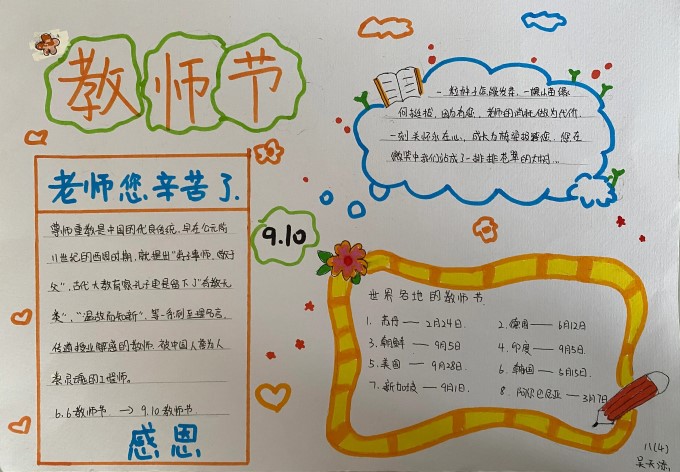 教师节
老师您辛苦了.
尊师重教是中国的优良传统,早在公元前
11世纪的西周时期,就提出"弟子事师,敬于
父",古代大教育家孔子更是留下了"有教无
类","温故而知新",等一系列至理名言,
传道授业解惑的教师,被中国人誉为人
类灵魂的工程师。
6.6教师节 → 9.10教师节
感恩
9.10
何挺拔,因为有您,老师的
一刻关怀永在心,成长为
微笑中我们站成了一排排
世界各地的教师节
1. 古丹 — 2月24日.
2. 德国 — 6月12日
3. 朝鲜 — 9月5日
4. 印度 — 9月5日.
5. 美国 — 9月28日.
6. 韩国 — 5月15日.
7. 新加坡 — 9月1日.
8. 阿尔巴尼亚 — 3月7日
八(4)